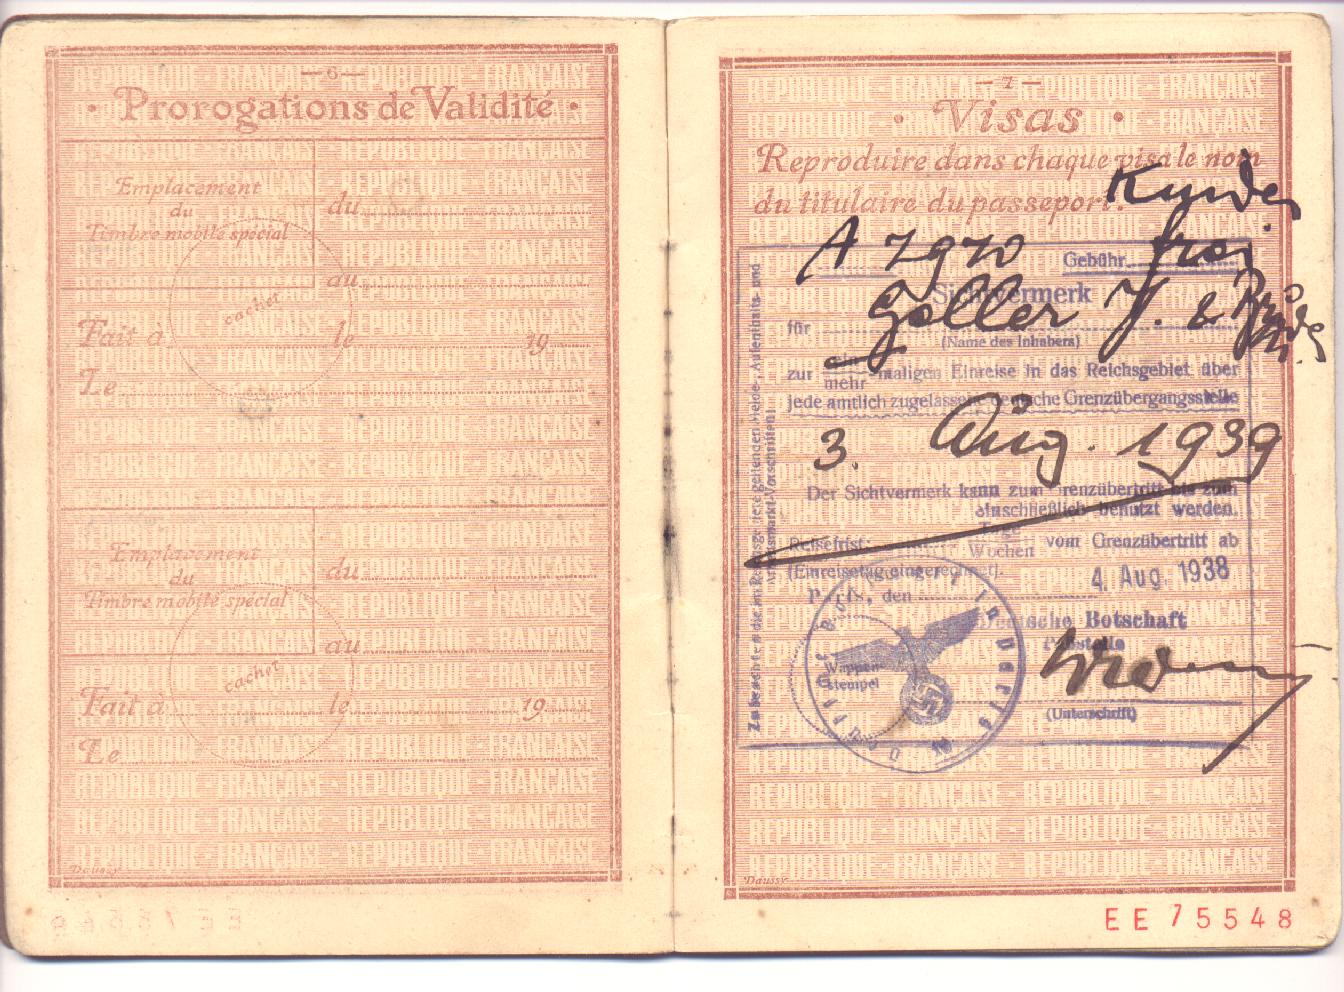 —6—
· Prorogations de Validité ·
Emplacement
du
Timbre mobile spécial
du
au
cachet
Fait à le 19
Le
Emplacement
du
Timbre mobile spécial
du
au
cachet
Fait à le 19
Le
Daussy
—7—
· Visas ·
Reproduire dans chaque visa le nom
du titulaire du passeport.
A 7970 frei
Gebühr
Sichtvermerk
für Goller J. &
(Name des Inhabers)
zur ein/mehr-maligen Einreise in das Reichsgebiet über
jede amtlich zugelassene deutsche Grenzübergangsstelle
3. Aug. 1939
Der Sichtvermerk kann zum Grenzübertritt bis zum
einschließlich benutzt werden.
Reisefrist: Tage/Wochen vom Grenzübertritt ab
(Einreisetag eingerechnet).
Paris, den 4. Aug. 1938
Deutsche Botschaft
Paßstelle
Wappen-
stempel
Deutsche Botschaft in Paris
(Unterschrift)
RÉPUBLIQUE - FRANÇAISE - RÉPUBLIQUE - FRANÇAISE
Daussy
EE 75548